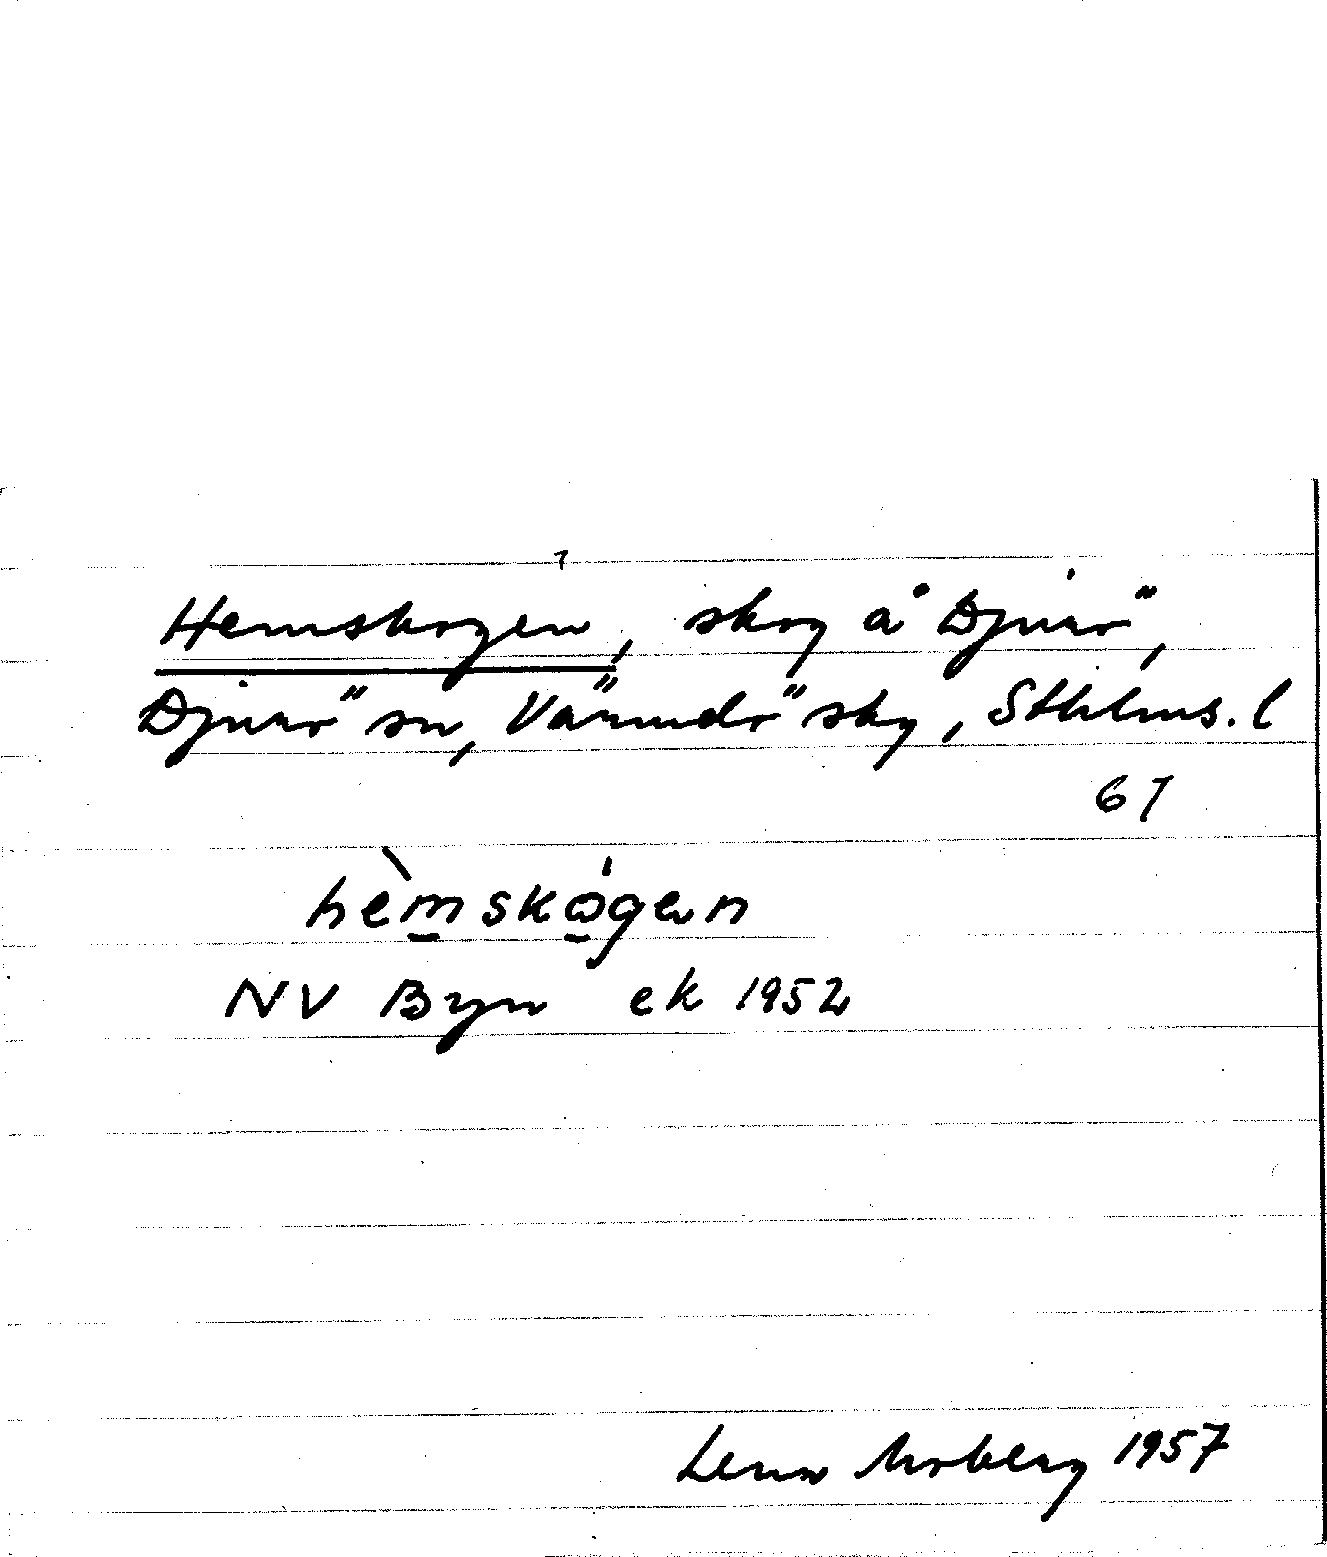 Hemskogen, skog å Djurö,
Djurö sn, Värmdö sky, Sthlms. l
61
hèmskógen
NV Byn ek 1952
Lena Moberg 1957